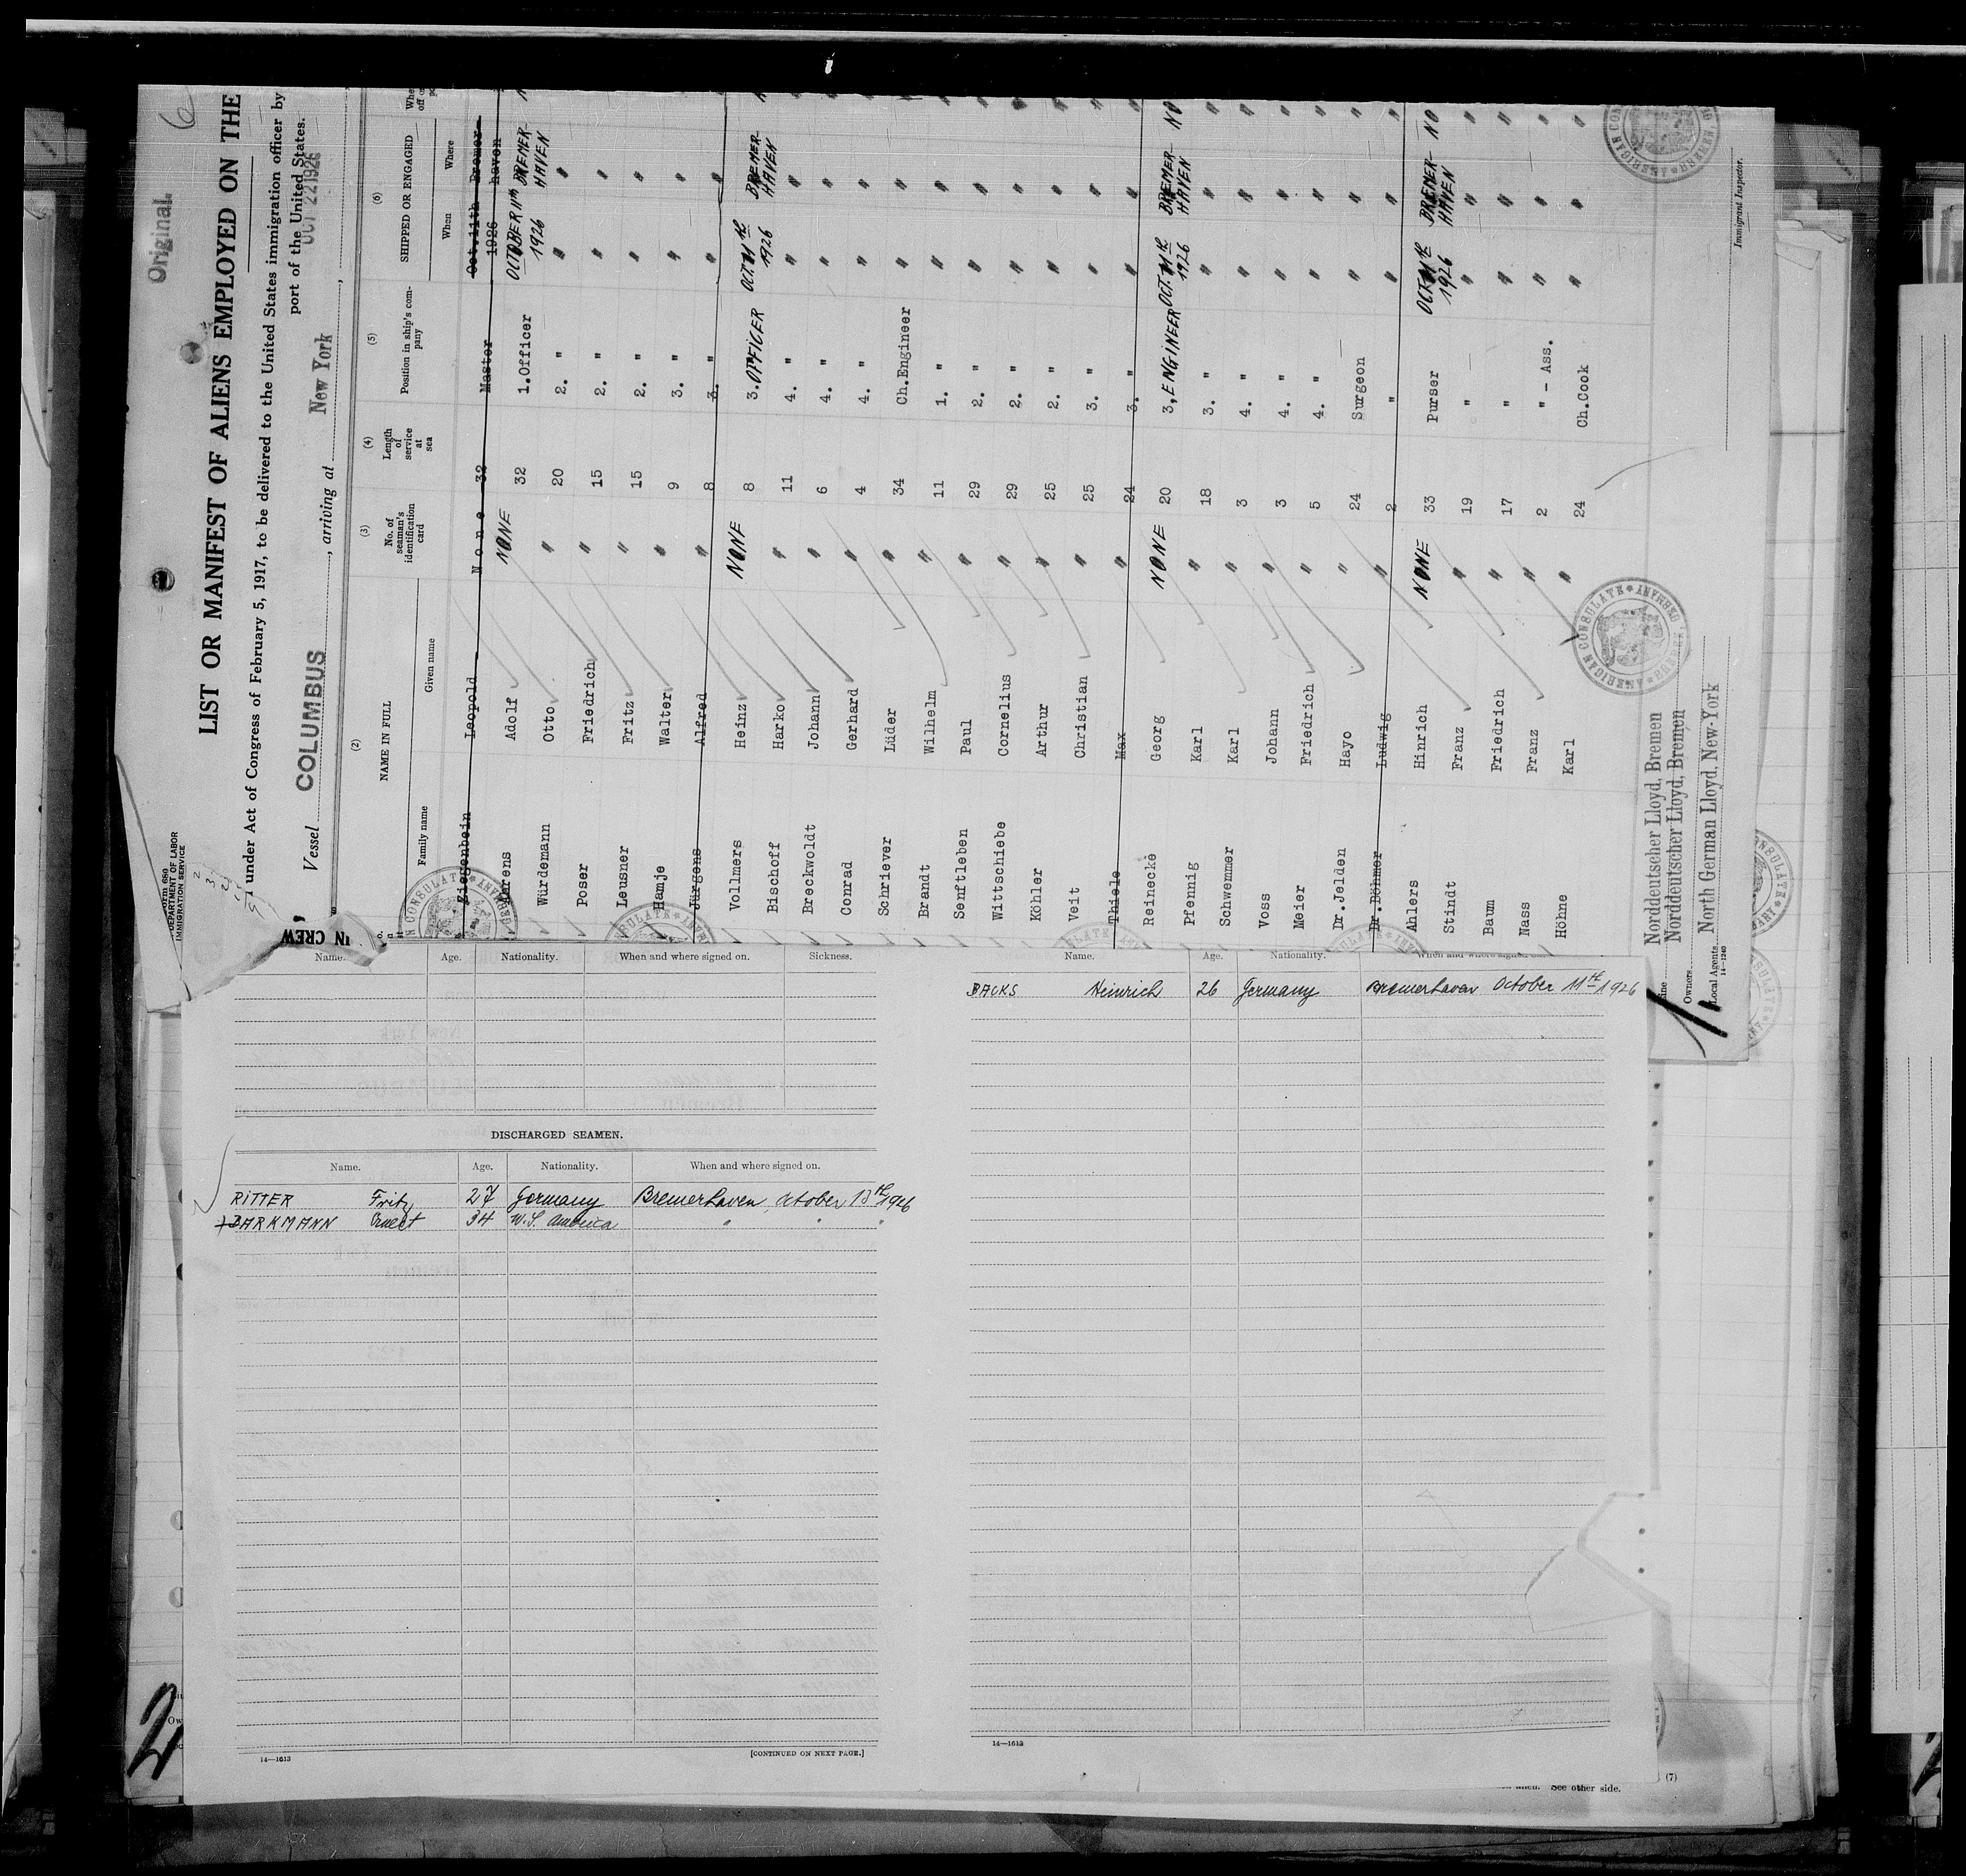 6
Original
LIST OR MANIFEST OF ALIENS EMPLOYED ON THE
under Act of Congress of February 5, 1917, to be delivered to the United States immigration officer by
port of the United States.
OCT 22 1926
Vessel COLUMBUS, arriving at New York
Form 680
DEPARTMENT OF LABOR
IMMIGRATION SERVICE
(2) (3) (4) (5) (6)
NAME IN FULL No. of seaman's identification card Length of service at sea Position in ship's company SHIPPED OR ENGAGED
Family name Given name When Where
Ziegenbein Leopold None 32 Master Oct.11th 1926 Bremerhaven
Ahrens Adolf NONE 32 1.Officer OCTOBER 11th 1926 BREMERHAVEN
Würdemann Otto " 20 2. " " "
Poser Friedrich " 15 2. " " "
Leusner Fritz " 15 2. " " "
Hamje Walter " 9 3. " " "
Jürgens Alfred " 8 3. " " "
Vollmers Heinz NONE 8 3. OFFICER OCT. 11th 1926 BREMERHAVEN
Bischoff Harko " 11 4. " " "
Breckwoldt Johann " 6 4. " " "
Conrad Gerhard " 4 4. " " "
Schriever Lüder " 34 Ch.Engineer " "
Brandt Wilhelm " 11 1. " " "
Senftleben Paul " 29 2. " " "
Wittschiebe Cornelius " 29 2. " " "
Köhler Arthur " 25 2. " " "
Veit Christian " 25 3. " " "
Thiele Max " 24 3. " " "
Reinecke Georg NONE 20 3, ENGINEER OCT. 11th 1926 BREMERHAVEN NO
Pfennig Karl " 18 3. " " " "
Schwemmer Karl " 3 4. " " " "
Voss Johann " 3 4. " " " "
Meier Friedrich " 5 4. " " " "
Dr.Jelden Hayo " 24 Surgeon " " "
Dr.Böhmer Ludwig " 2 " " " "
Ahlers Hinrich NONE 33 Purser OCT 11th 1926 BREMERHAVEN NO
Stindt Franz " 19 " " " "
Baum Friedrich " 17 " " " "
Nass Franz " 2 " - Ass. " " "
Höhne Karl " 24 Ch.Cook " " "
AMERICAN CONSULATE BREMEN, GERMANY
Norddeutscher Lloyd, Bremen
Owners Norddeutscher Lloyd, Bremen
Local Agents North German Lloyd, New-York
14-1240
Immigrant Inspector.
IN CREW
Name. Age. Nationality. When and where signed on. Sickness.
DISCHARGED SEAMEN.
Name. Age. Nationality. When and where signed on.
RITTER Fritz 27 Germany Bremerhaven October 13th 1926
BARKMANN Ernest 34 U.S. America " " "
14—1613
[CONTINUED ON NEXT PAGE.]
Name. Age. Nationality. When and where signed on.
BACKS Heinrich 26 Germany Bremerhaven October 11th 1926
14—1613
See other side.
(7)
2